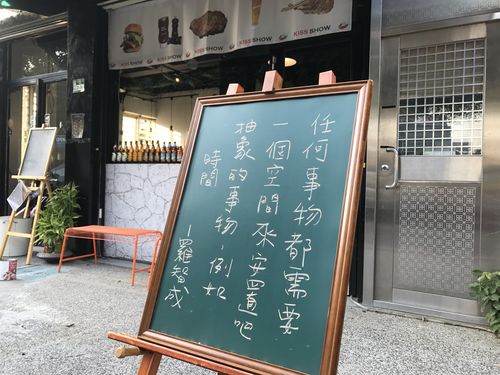 KISS SHOW
KISS SHOW
KISS SHOW
任何事物都需要
一個空間來安置吧
抽象的事物,例如
時間
-羅智成